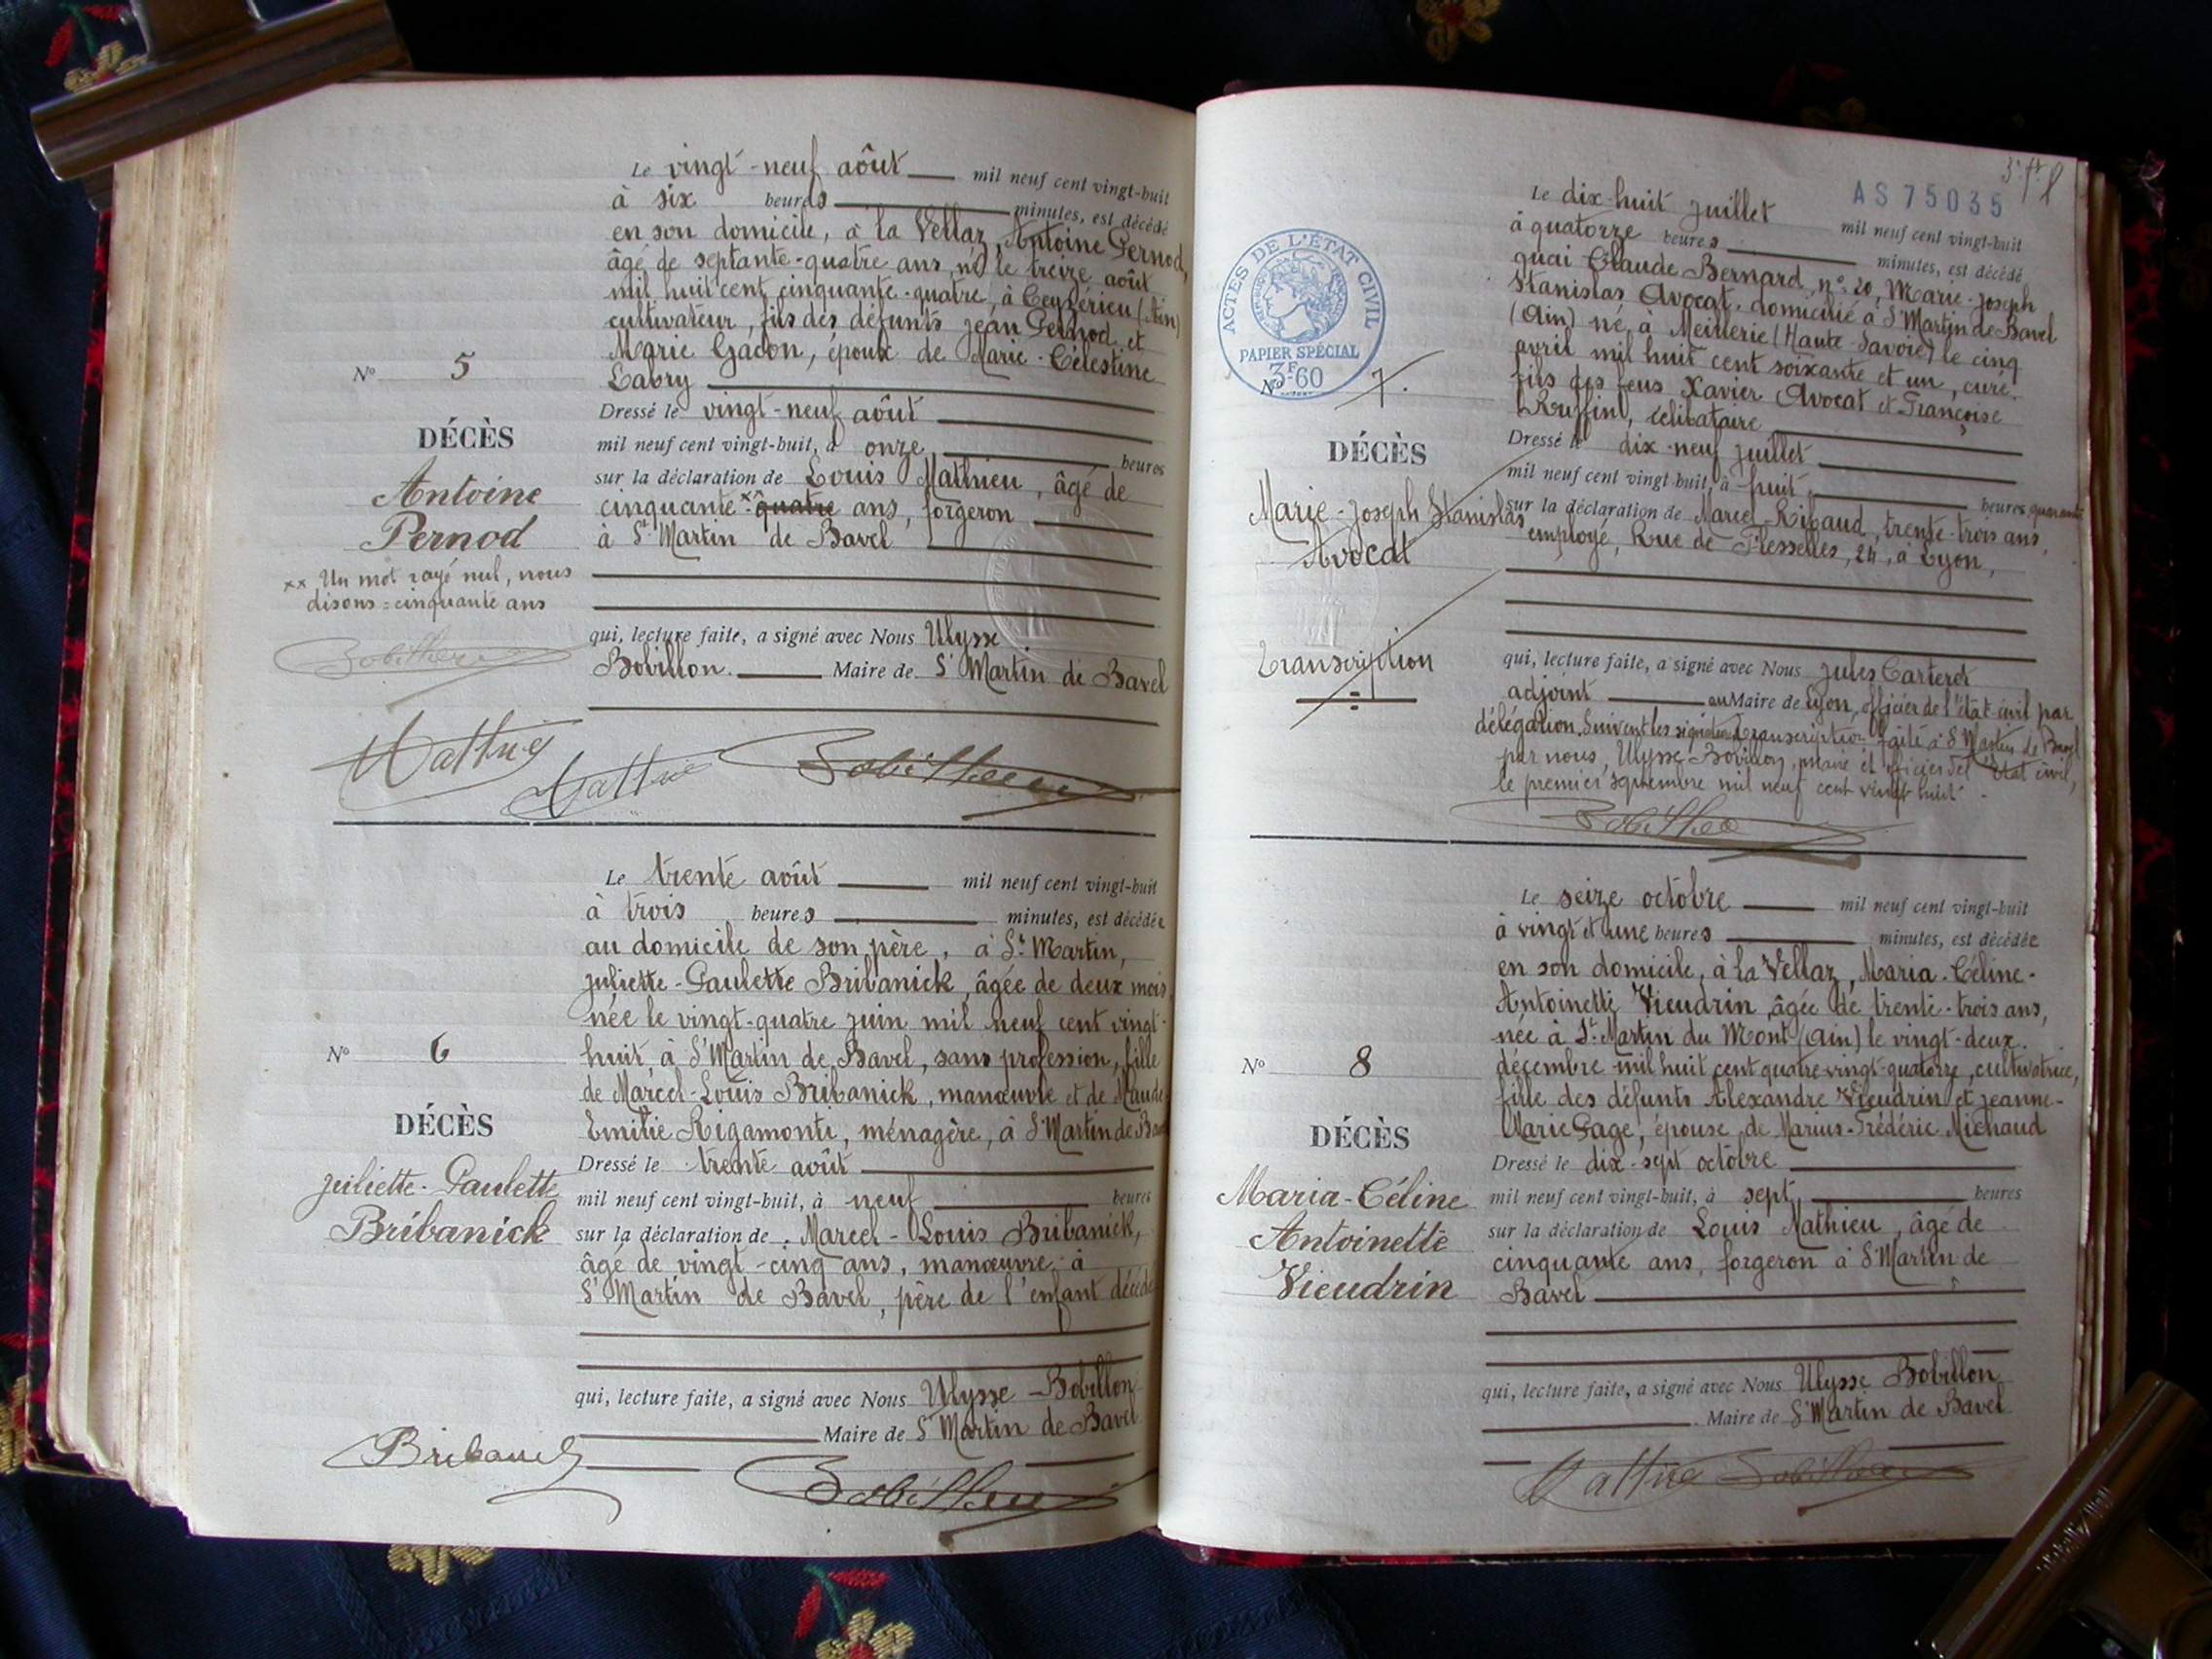 Le vingt-neuf août mil neuf cent vingt-huit
à six heures minutes, est décédé
en son domicile, à la Vellaz, Antoine Pernod,
âgé de septante-quatre ans, né le treize août
mil huit cent cinquante-quatre, à Ceyzérieu (Ain)
cultivateur, fils des défunts Jean Pernod et
Marie Gacon, époux de Marie-Célestine
Labry
Nº 5
DÉCÈS
Antoine
Pernod
xx Un mot rayé nul, nous
disons = cinquante ans
Dressé le vingt-neuf août
mil neuf cent vingt-huit, à onze heures
sur la déclaration de Louis Mathieu, âgé de
cinquante-quatre ans, forgeron
à St Martin de Bavel
qui, lecture faite, a signé avec Nous Ulysse
Bobillon. Maire de St Martin de Bavel
Le trente août mil neuf cent vingt-huit
à trois heures minutes, est décédée
au domicile de son père, à St Martin,
Juliette-Paulette Bribanick, âgée de deux mois
née le vingt-quatre juin mil neuf cent vingt-
huit, à St Martin de Bavel, sans profession, fille
de Marcel-Louis Bribanick, manœuvre et de Maude
Emilie Rigamonti, ménagère, à St Martin de
Nº 6
DÉCÈS
Juliette-Paulette
Bribanick
Dressé le trente août
mil neuf cent vingt-huit, à neuf heures
sur la déclaration de Marcel-Louis Bribanick,
âgé de vingt-cinq ans, manœuvre, à
St Martin de Bavel, père de l'enfant
qui, lecture faite, a signé avec Nous Ulysse Bobillon
Maire de St Martin de Bavel
Bribanick
AS 75035
ACTES DE L'ÉTAT CIVIL
PAPIER SPÉCIAL
3F60
Le dix-huit juillet mil neuf cent vingt-huit
à quatorze heures minutes, est décédé
quai Claude Bernard, nº 20, Marie-Joseph
Stanislas Avocat, domicilié à St Martin de Bavel
(Ain) né à Meillerie (Haute-Savoie) le cinq
avril mil huit cent soixante et un, curé,
fils des feus Xavier Avocat et Françoise
célibataire
Nº 7.
DÉCÈS
Marie-Joseph Stanislas
Avocat
Transcription
Dressé le dix-neuf juillet
mil neuf cent vingt-huit, à huit heures quarante
sur la déclaration de Marcel Ribaud, trente-trois ans,
employé, Rue de Flesselles, 24, à Lyon,
qui, lecture faite, a signé avec Nous Jules Carteret
adjoint au Maire de Lyon, officier de l'état civil par
délégation. Suivent les signatures. Transcription faite à St Martin de Bavel
par nous, Ulysse Bobillon, maire et officier de l'état civil,
le premier septembre mil neuf cent vingt huit.
Le seize octobre mil neuf cent vingt-huit
à vingt et une heures minutes, est décédée
en son domicile, à la Vellaz, Maria-Céline-
Antoinette Vieudrin, âgée de trente-trois ans,
née à St-Martin du Mont (Ain) le vingt-deux
décembre mil huit cent quatre-vingt-quatorze, cultivatrice,
fille des défunts Alexandre Vieudrin et Jeanne-
Marie Page, épouse de Marius-Frédéric Michaud
Nº 8
DÉCÈS
Maria-Céline
Antoinette
Vieudrin
Dressé le dix-sept octobre
mil neuf cent vingt-huit, à sept heures
sur la déclaration de Louis Mathieu, âgé de
cinquante ans, forgeron à St Martin de
Bavel
qui, lecture faite, a signé avec Nous Ulysse Bobillon
Maire de St Martin de Bavel